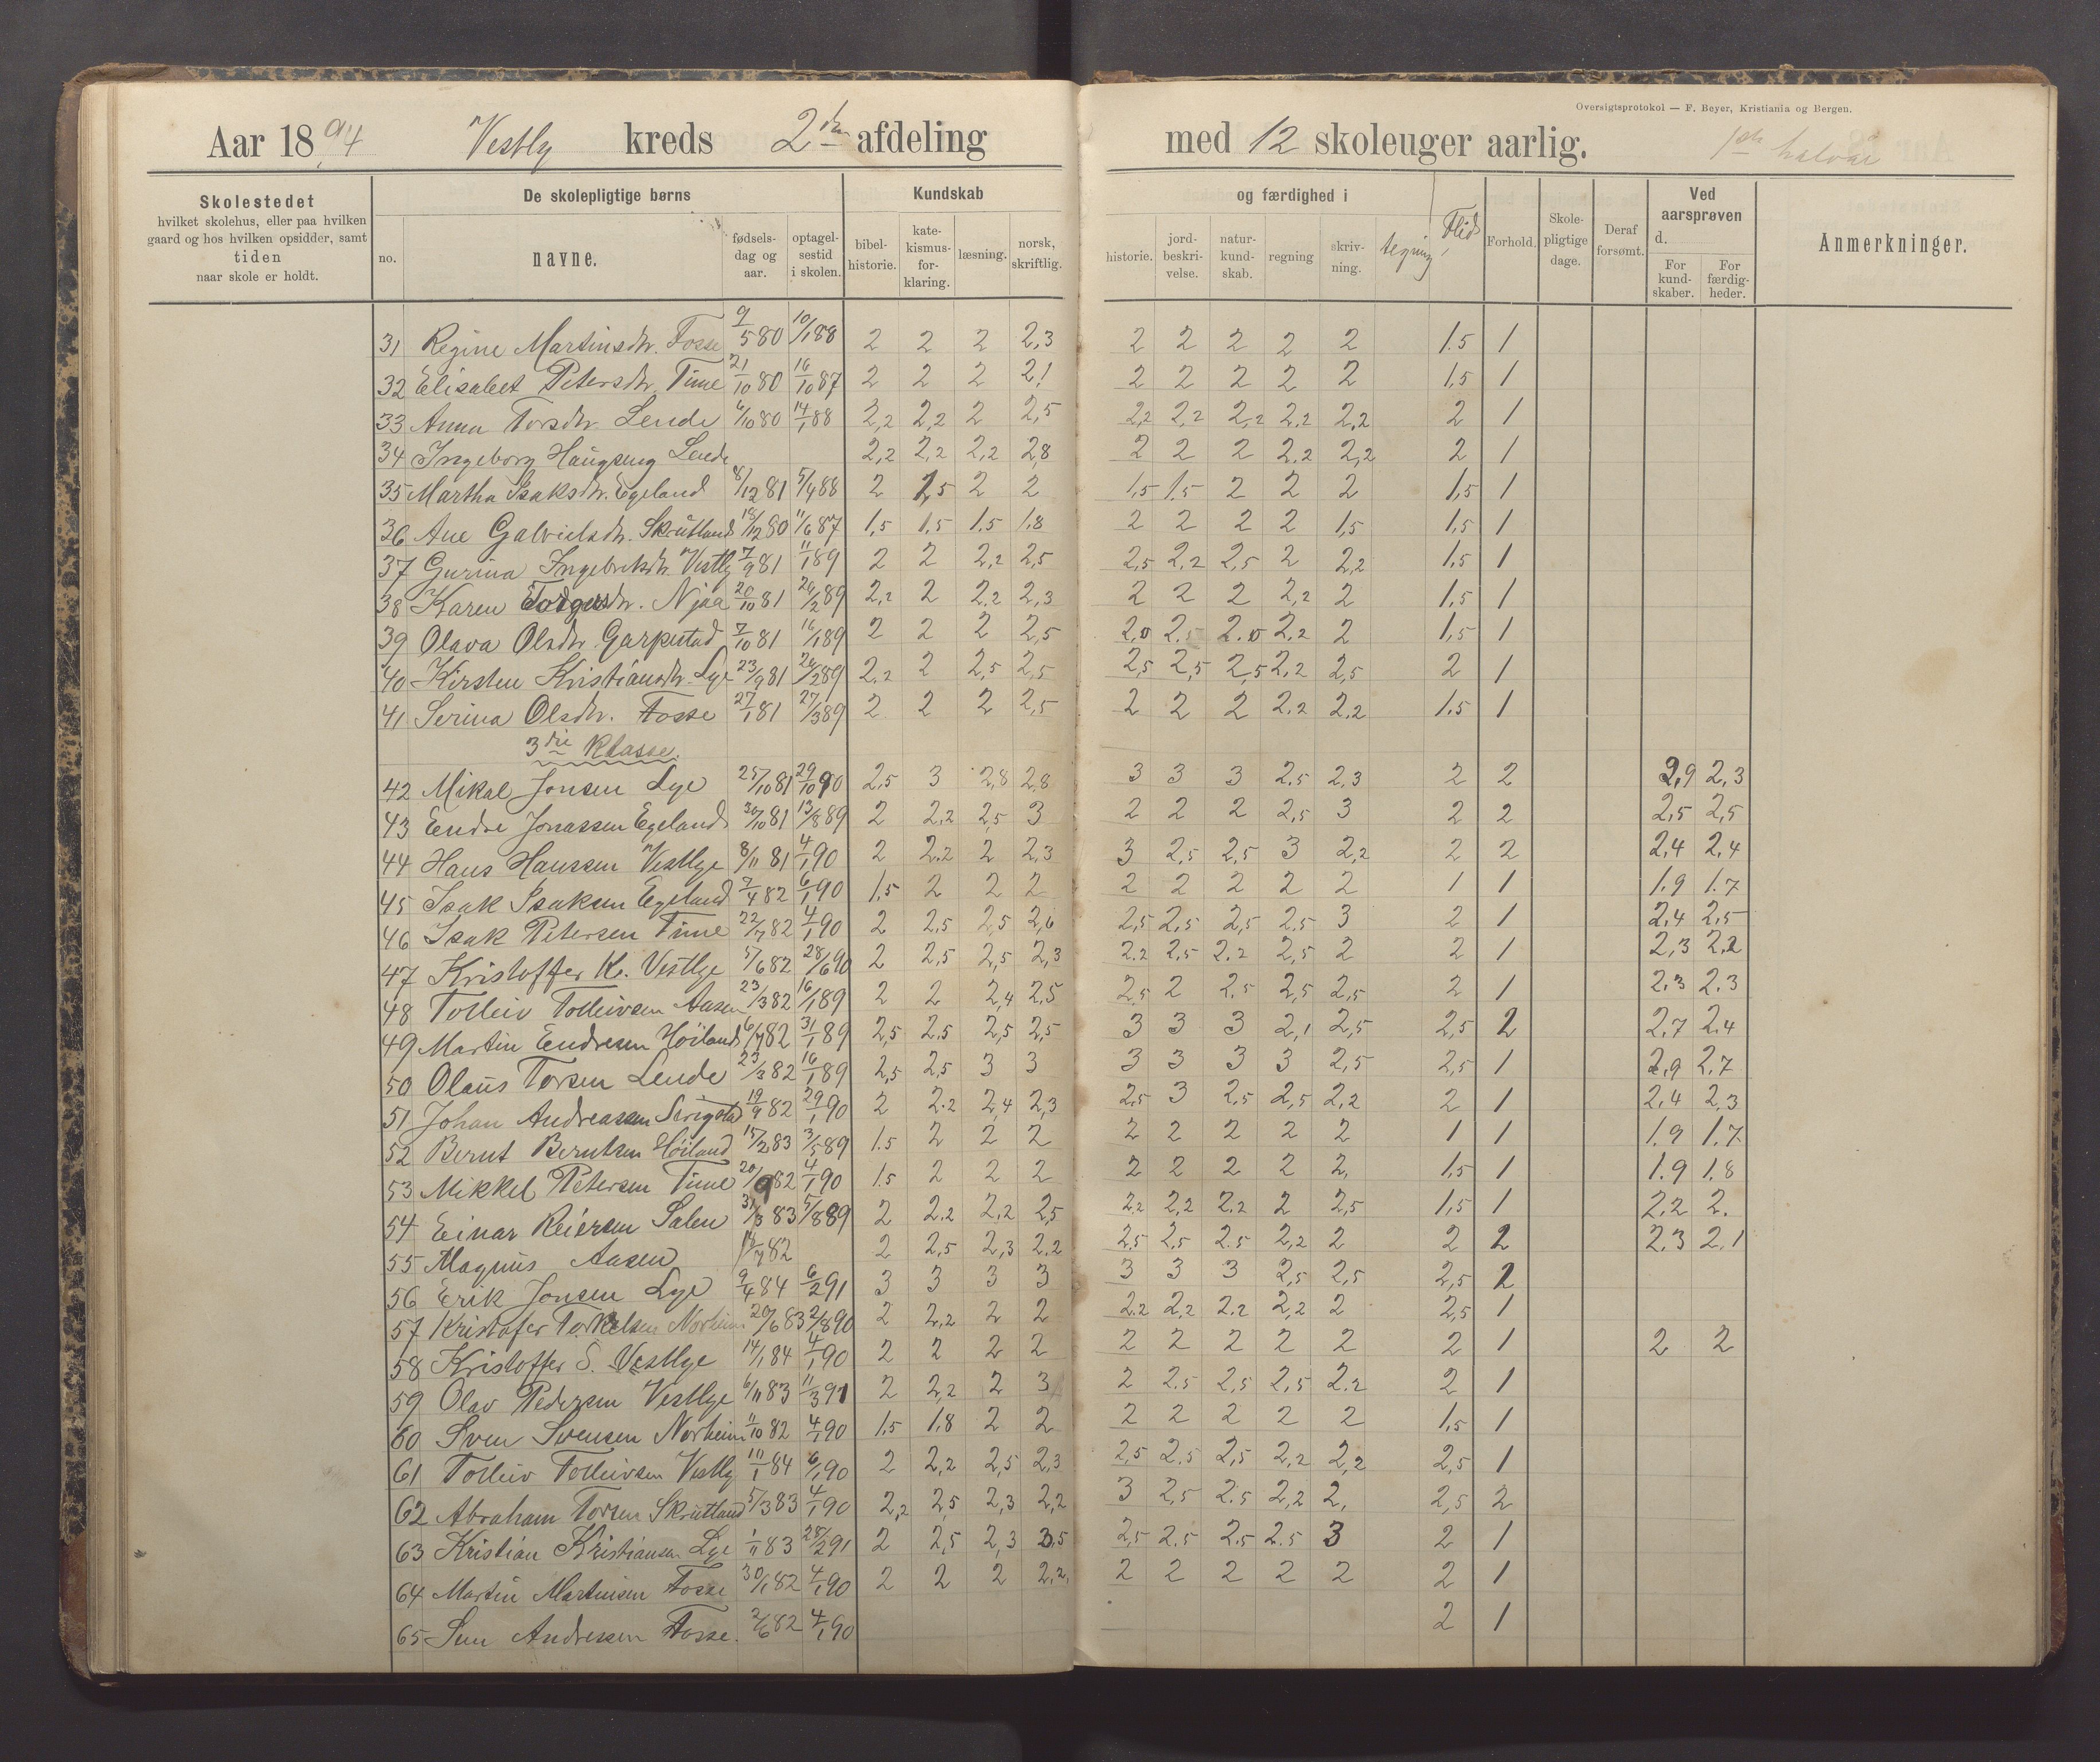 Oversigtsprotokol — F. Beyer, Kristiania og Bergen.
Aar 1894 Vestly kreds 2den afdeling med 12 skoleuger aarlig. 1ste halvår
Skolestedet
hvilket skolehus, eller paa hvilken
gaard og hos hvilken opsidder, samt
tiden
naar skole er holdt.
De skolepligtige børns
no. navne. fødsels-dag og aar. optagel-sestid i skolen.
Kundskab og færdighed i
bibel-historie. kate-kismus-for-klaring. læsning. norsk, skriftlig. historie. jord-beskri-velse. natur-kund-skab. regning skriv-ning. tegning Flid Forhold. Skole-pligtige dage. Deraf forsømt.
Ved aarsprøven d.
For kund-skaber. For færdig-heder.
Anmerkninger.
31 Regine Martinsdtr. Fosse 9/5 80 10/1 88 2 2 2 2,3 2 2 2 2 2 1.5 1
32 Elisabet Petersdtr. Time 21/10 80 16/10 87 2 2 2 2,1 2 2 2 2 2 1,5 1
33 Anna Torsdtr. Lende 6/10 80 14/1 88 2,2 2,2 2 2,5 2,2 2,2 2,2 2.2 2,2 2 1
34 Ingeborg Haugseng Lende 2,2 2,2 2,2 2,8 2 2 2 2.2 2,2 2 1
35 Martha Isaksdtr. Egeland 8/12 81 5/4 88 2 2,5 2 2 1,5 1.5 2 2 2 1,5 1
36 Ane Gabrielsdtr. Skrutland 18/12 80 11/6 87 1,5 1,5 1.5 1,8 2 2 2 2 1,5 1,5 1
37 Gurina Ingebretsdtr. Vestly 7/9 81 11/1 89 2 2 2,2 2,5 2,5 2,2 2,5 2 2,2 1,5 1
38 Karen Torgersdtr. Njaa 20/10 81 20/2 89 2,2 2 2.2 2,3 2 2 2 2,2 2 1,5 1
39 Olava Olsdtr. Garpestad 7/10 81 16/1 89 2 2 2 2,5 2,0 2.5 2.0 2,2 2 1,5 1
40 Kirsten Kristiansdtr. Lye 23/9 81 20/2 89 2.2 2 2,5 2,5 2,5 2,5 2,5 2,2 2,5 2 1
41 Serina Olsdtr. Fosse 27/1 81 27/3 89 2 2 2 2,5 2 2 2 2.2 2.2 1.5 1
3die Klasse.
42 Mikal Jonsen Lye 25/10 81 29/10 90 2,5 3 2,8 2,8 3 3 3 2.5 2,3 2 2 2,9 2,3
43 Endre Jonassen Egeland 30/10 81 13/8 89 2 2,2 2,5 3 2 2 2 2,5 3 2 2 2,5 2,5
44 Hans Hanssen Vestlye 8/11 81 4/1 90 2 2.2 2 2,3 3 2,5 2,5 3 2,2 2 2 2,4 2,4
45 Isak Isaksen Egeland 7/4 82 6/1 90 1,5 2 2 2 2 2 2 2 2 1 1 1.9 1.7
46 Isak Petersen Time 22/7 82 4/1 90 2 2,5 2,5 2,6 2,5 2,5 2,5 2.5 3 2 1 2,4 2,5
47 Kristoffer K. Vestlye 5/6 82 28/6 90 2 2,5 2,5 2,3 2.2 2,5 2.2 2,5 2 2 1 2,3 2.2
48 Tolleiv Tolleivsen Aasen 23/3 82 16/1 89 2 2 2,4 2,5 2,5 2 2.5 2,5 2,5 2 1 2.3 2.3
49 Martin Endresen Høiland 6/7 82 31/1 89 2,5 2.5 2,5 2,5 3 3 3 2,1 2,5 2,5 2 2.7 2.4
50 Olaus Torsen Lende 23/3 82 16/1 89 2,5 2,5 3 3 3 3 3 3 2,5 2,5 1 2,9 2,7
51 Johan Andreassen Serigstad 19/9 82 29/1 90 2 2.2 2,4 2,3 2,5 3 2,5 2,5 2,2 2 1 2,4 2,3
52 Bernt Berntsen Høiland 15/2 83 3/5 89 1.5 2 2 2 2 2 2 2 2 1 1 1.9 1.7
53 Mikkel Petersen Time 20/9 82 4/1 90 1.5 2 2 2 2 2 2 2 2, 1,5 1 1.9 1.8
54 Einar Reiersen Salen 31/3 83 5/8 89 2 2.2 2,2 2,5 2.2 2,2 2.2 2 2,5 1,5 1 2,2 2.
55 Magnus Aasen 16/7 82 2 2,5 2,3 2.2 2,5 2,5 2.5 2,2 2 2 2 2.3 2.1
56 Erik Jonsen Lye 9/4 84 6/2 91 3 3 3 3 3 3 3 2,5 2,5 2,5 2
57 Kristofer Torkelsen Norheim 20/6 83 2/8 90 2 2,2 2 2 2.2 2,2 2.2 2,2 2 2,5 1
58 Kristoffer S. Vestlye 14/1 84 4/1 90 2 2 2 2 2 2 2 2 2 2 1 2 2
59 Olav Pedersen Vestlye 6/11 83 11/3 91 2 2,2 2 3 2 2.5 2,5 2,5 2.2 2 1
60 Sven Svensen Norheim 11/10 82 4/1 90 1,5 1,8 2 2 2 2 2 2 2 1,5 1
61 Tolleiv Tolleivsen Vestly 11/1 84 6/1 90 2 2,2 2,5 2,3 2,5 2.5 2,5 2,2 2,2 2,5 1
62 Abraham Torsen Skrutland 5/3 83 4/1 90 2,2 2,5 2,3 2,2 3 2,5 2.5 2,2 2, 2,5 2
63 Kristian Kristiansen Lye 1/11 83 28/2 91 2 2,5 2,3 3,5 2,5 2.5 2.5 2.5 3 2 1
64 Martin Martinsen Fosse 30/1 82 4/1 90 2 2 2 2,2, 2 2 2 2 2 2 1
65 Andressen Fosse. 2/6 82 4/1 90 2 1